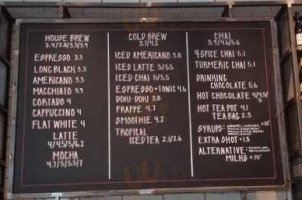 HOUSE BREW
ESPRESSO 3.3
LONG BLACK 3.3
AMERICANO 3.3
MACCHIATO 3.9
CORTADO 4
CAPPUCCINO 4
FLAT WHITE 4
LATTE
4/4.5/5/6.5
MOCHA
COLD BREW
3.7/4.5
ICED AMERICANO 3.8
ICED LATTE 5/5.5
ICED CHAI 5/5.5
ESPRESSO + TONIC 4.6
DOKI DOKI 3.8
FRAPPE 4.7
SMOOTHIE 4.2
TROPICAL
ICED TEA 2.1/2.6
CHAI
4 SPICE CHAI 5.1
TURMERIC CHAI 5.1
DRINKING
CHOCOLATE 5.6
HOT CHOCOLATE
HOT TEA POT 4.1
TEA BAG 2.3
SYRUPS
EXTRA SHOT +1.5
ALTERNATIVE
MILKS